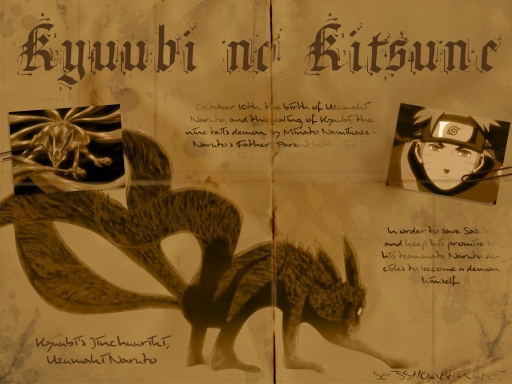 Kyuubi no Kitsune
October 10th, the birth of Uzumaki
Naruto, and the sealing of Kyuubi, the
nine tails demon by Minato Namikaze-
Naruto's Father. Parent both
In order to save Sas
and keep his promise to
his teammate Naruto de-
cides to become a demon
himself.
Kyuubi's Jinchuuriki,
Uzumaki Naruto